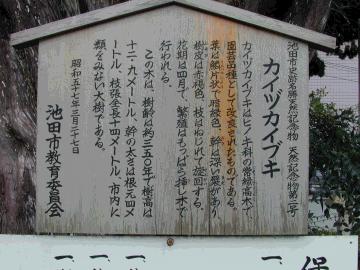 池田市史跡名勝天然記念物 天然記念物第二号
カイヅカイブキ
カイヅカイブキはヒノキ科の常緑高木で、
園芸品種として改良されたものである。
葉は鱗片状で暗緑色、幹は深い襞があり
樹皮は赤褐色、枝はねじれて旋回する。
花期は四月で、繁殖はもっぱら挿し木で
行われる。
この木は、樹齢は約三五〇年で樹高は
十二・九メートル、幹の太さは根元四メ
ートル、枝張全長十四メートル、市内に
類をみない大樹である。
昭和五十七年三月二十七日
池田市教育委員会
保
一、
一、
一、